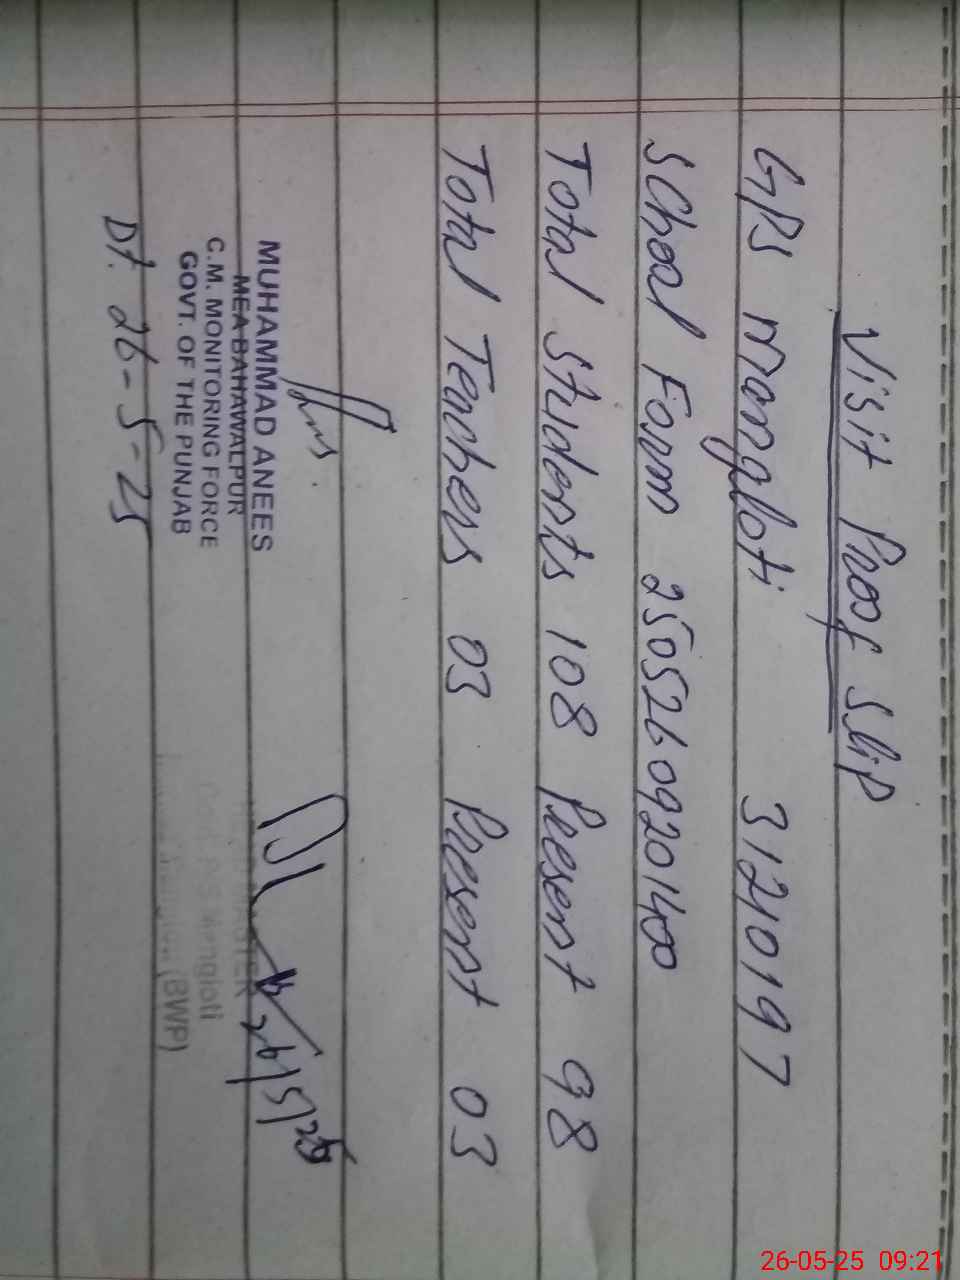 Visit Proof Slip
GPS Mangloti 31210197
School Form 25052609201400
Total Students 108 Present 98
Total Teachers 03 Present 03
MUHAMMAD ANEES
MEA BAHAWALPUR
C.M. MONITORING FORCE
GOVT. OF THE PUNJAB
Dt. 26-5-25
26/5/25
Mangloti
(BWP)
26-05-25 09:21